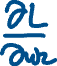 ∂L
∂w₂